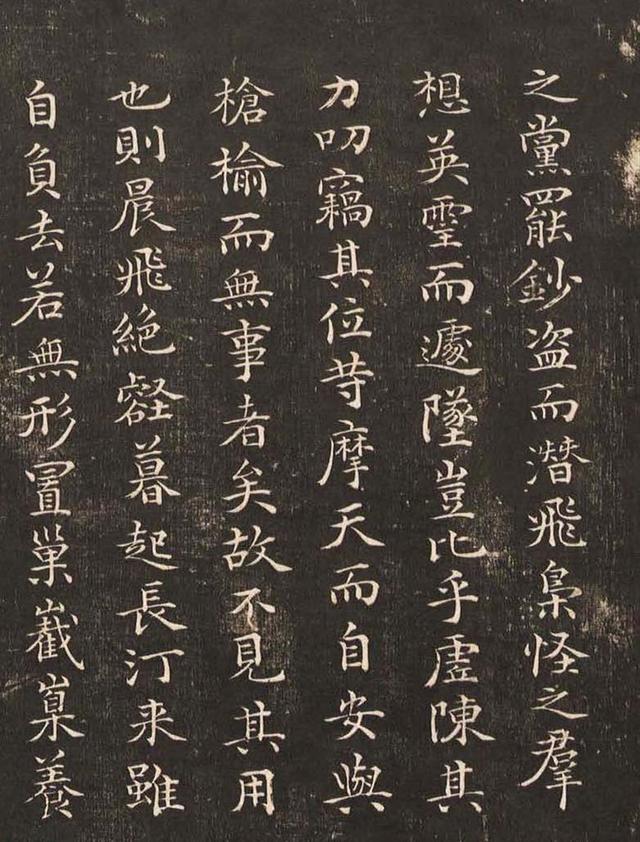 之黨罷鈔盗而潛飛梟怪之羣
想英霊而遽墜豈比乎虛陳其
力叨竊其位等摩天而自安與
槍榆而無事者矣故不見其用
也則晨飛絕壑暮起長汀来雖
自負去若無形置巢嶻嵲養